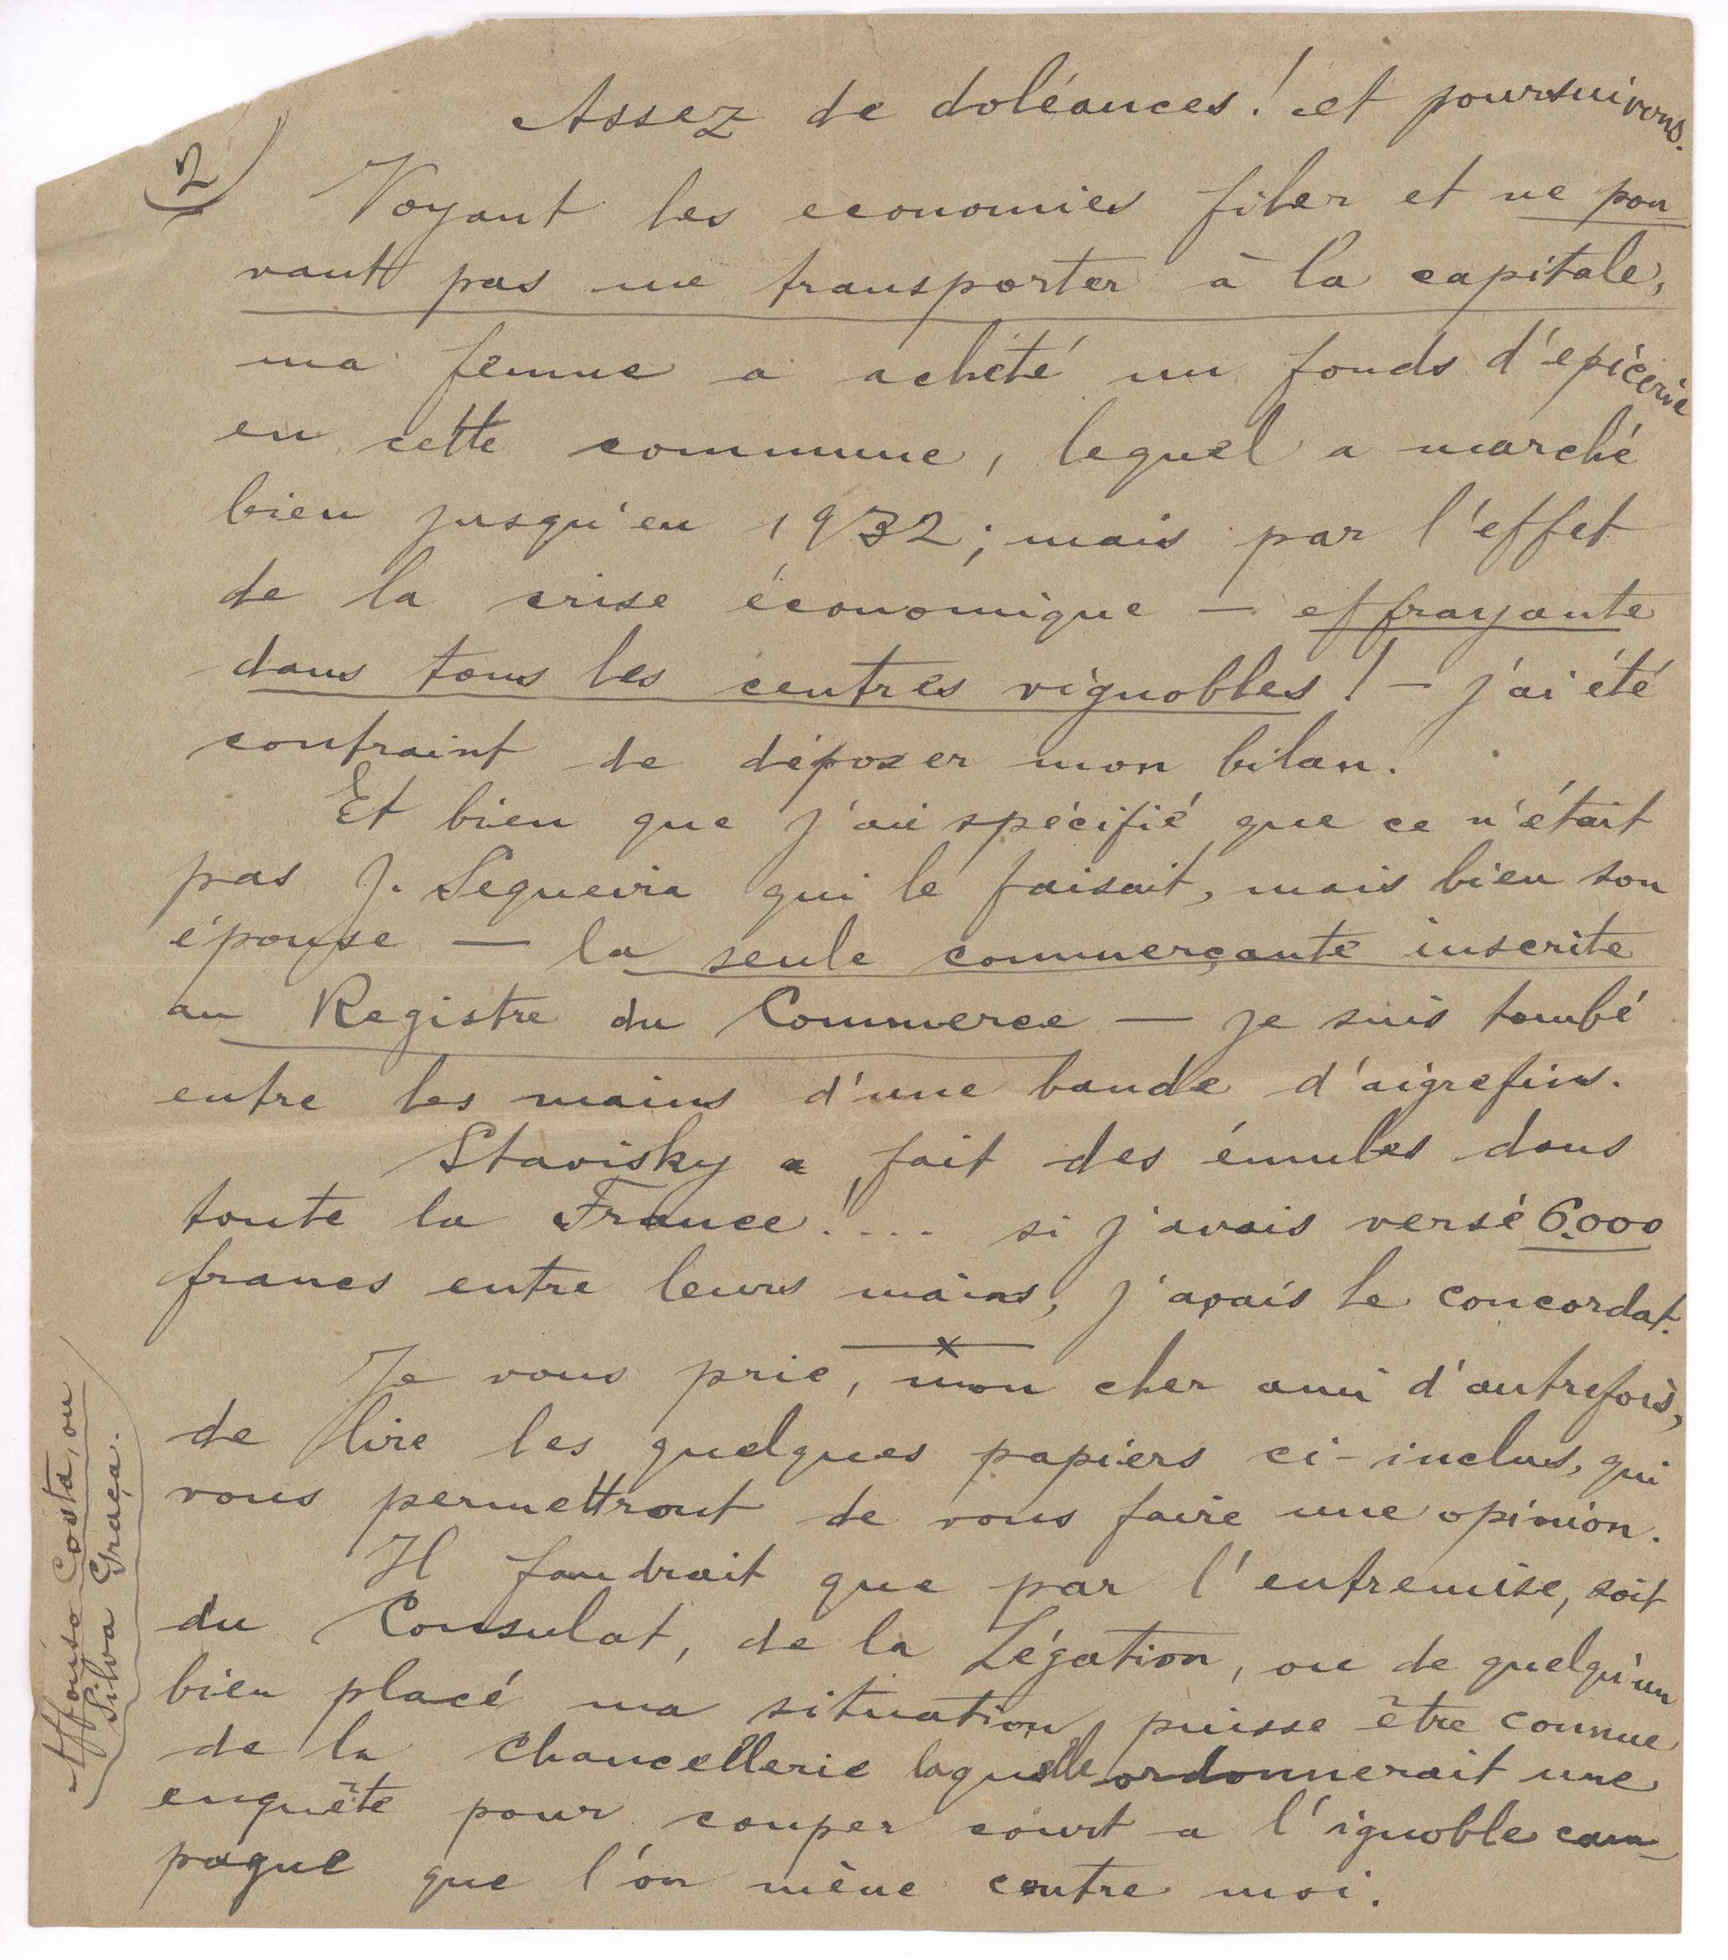 (2)
Assez de doléances! et poursuivons.
Voyant les economies filer et ne pou
vant pas me transporter à la capitale,
ma femme a acheté un fonds d'epicerie
en cette commune, lequel a marché
bien jusqu'en 1932; mais par l'effet
de la crise économique — effrayante
dans tous les centres vignobles! — j'ai été
contraint de déposer mon bilan.
Et bien que j'aie spécifié que ce n'était
pas J. Sequeira qui le faisait, mais bien son
épouse — la seule commerçante inscrite
au Registre du Commerce — je suis tombé
entre les mains d'une bande d'aigrefins.
Stavisky a fait des émules dans
toute la France!.... si j'avais versé 6.000
francs entre leurs mains, j'avais le concordat.
x
Je vous prie, mon cher ami d'autrefois,
de lire les quelques papiers ci-inclus, qui
vous permettront de vous faire une opinion.
Il faudrait que par l'entremise, soit
du Consulat, de la Légation, ou de quelqu'un
bien placé ma situation puisse être connue
de la Chancellerie laquelle ordonnerait une
enquête pour couper court a l'ignoble cam-
pagne que l'on mène contre moi.
Affonso Costa, ou
Silva Graça.